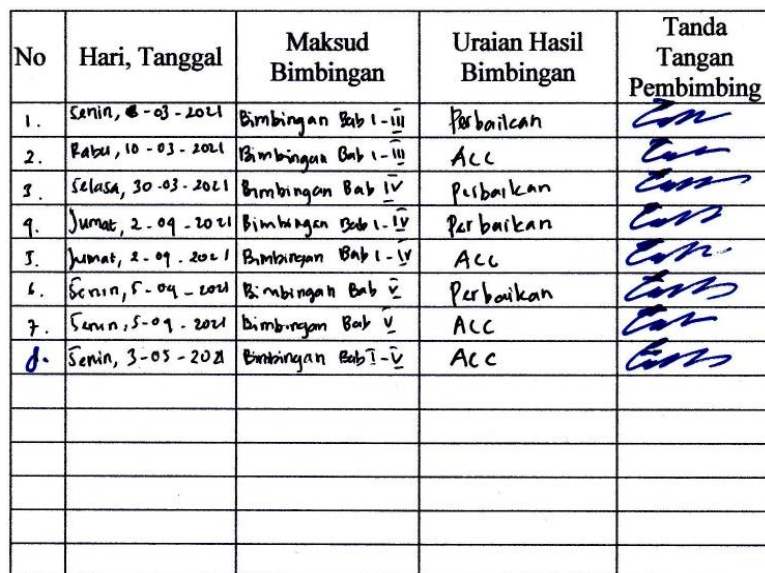 No Hari, Tanggal Maksud Bimbingan Uraian Hasil Bimbingan Tanda Tangan Pembimbing
1. Senin, -03-2021 Bimbingan Bab I-III Perbaikan
2. Rabu, 10-03-2021 Bimbingan Bab I-III ACC
3. Selasa, 30-03-2021 Bimbingan Bab IV Perbaikan
4. Jumat, 2-04-2021 Bimbingan Bab I-IV Perbaikan
5. Jumat, 2-04-2021 Bimbingan Bab I-IV ACC
6. Senin, 5-04-2021 Bimbingan Bab V Perbaikan
7. Senin, 5-04-2021 Bimbingan Bab V ACC
8. Senin, 3-05-2021 Bimbingan Bab I-V ACC